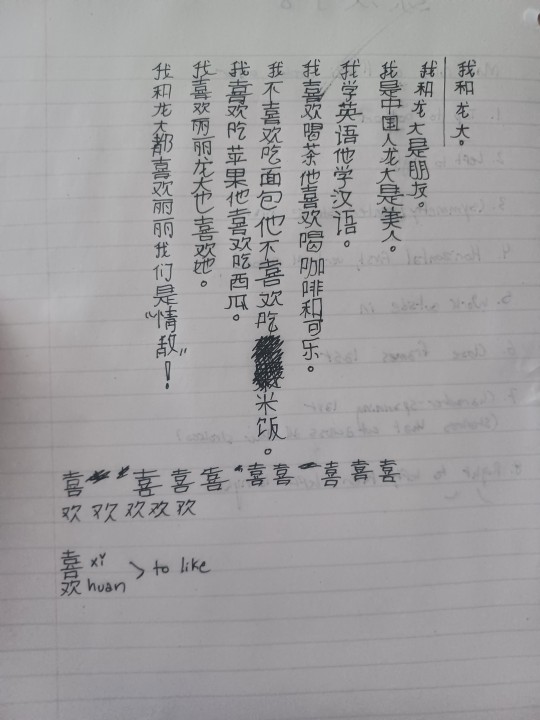 我和龙大。
我和龙大是朋友。
我是中国人龙大是美人。
我学英语他学汉语。
我喜欢喝茶他喜欢喝咖啡和可乐。
我不喜欢吃面包他不喜欢吃米饭。
我喜欢吃苹果他喜欢吃西瓜。
我喜欢丽丽龙大也喜欢她。
我和龙大都喜欢丽丽我们是“情敌”！
喜 喜 喜 喜 喜 喜 喜 喜 喜
欢 欢 欢 欢 欢
喜 xǐ
欢 huan > to like